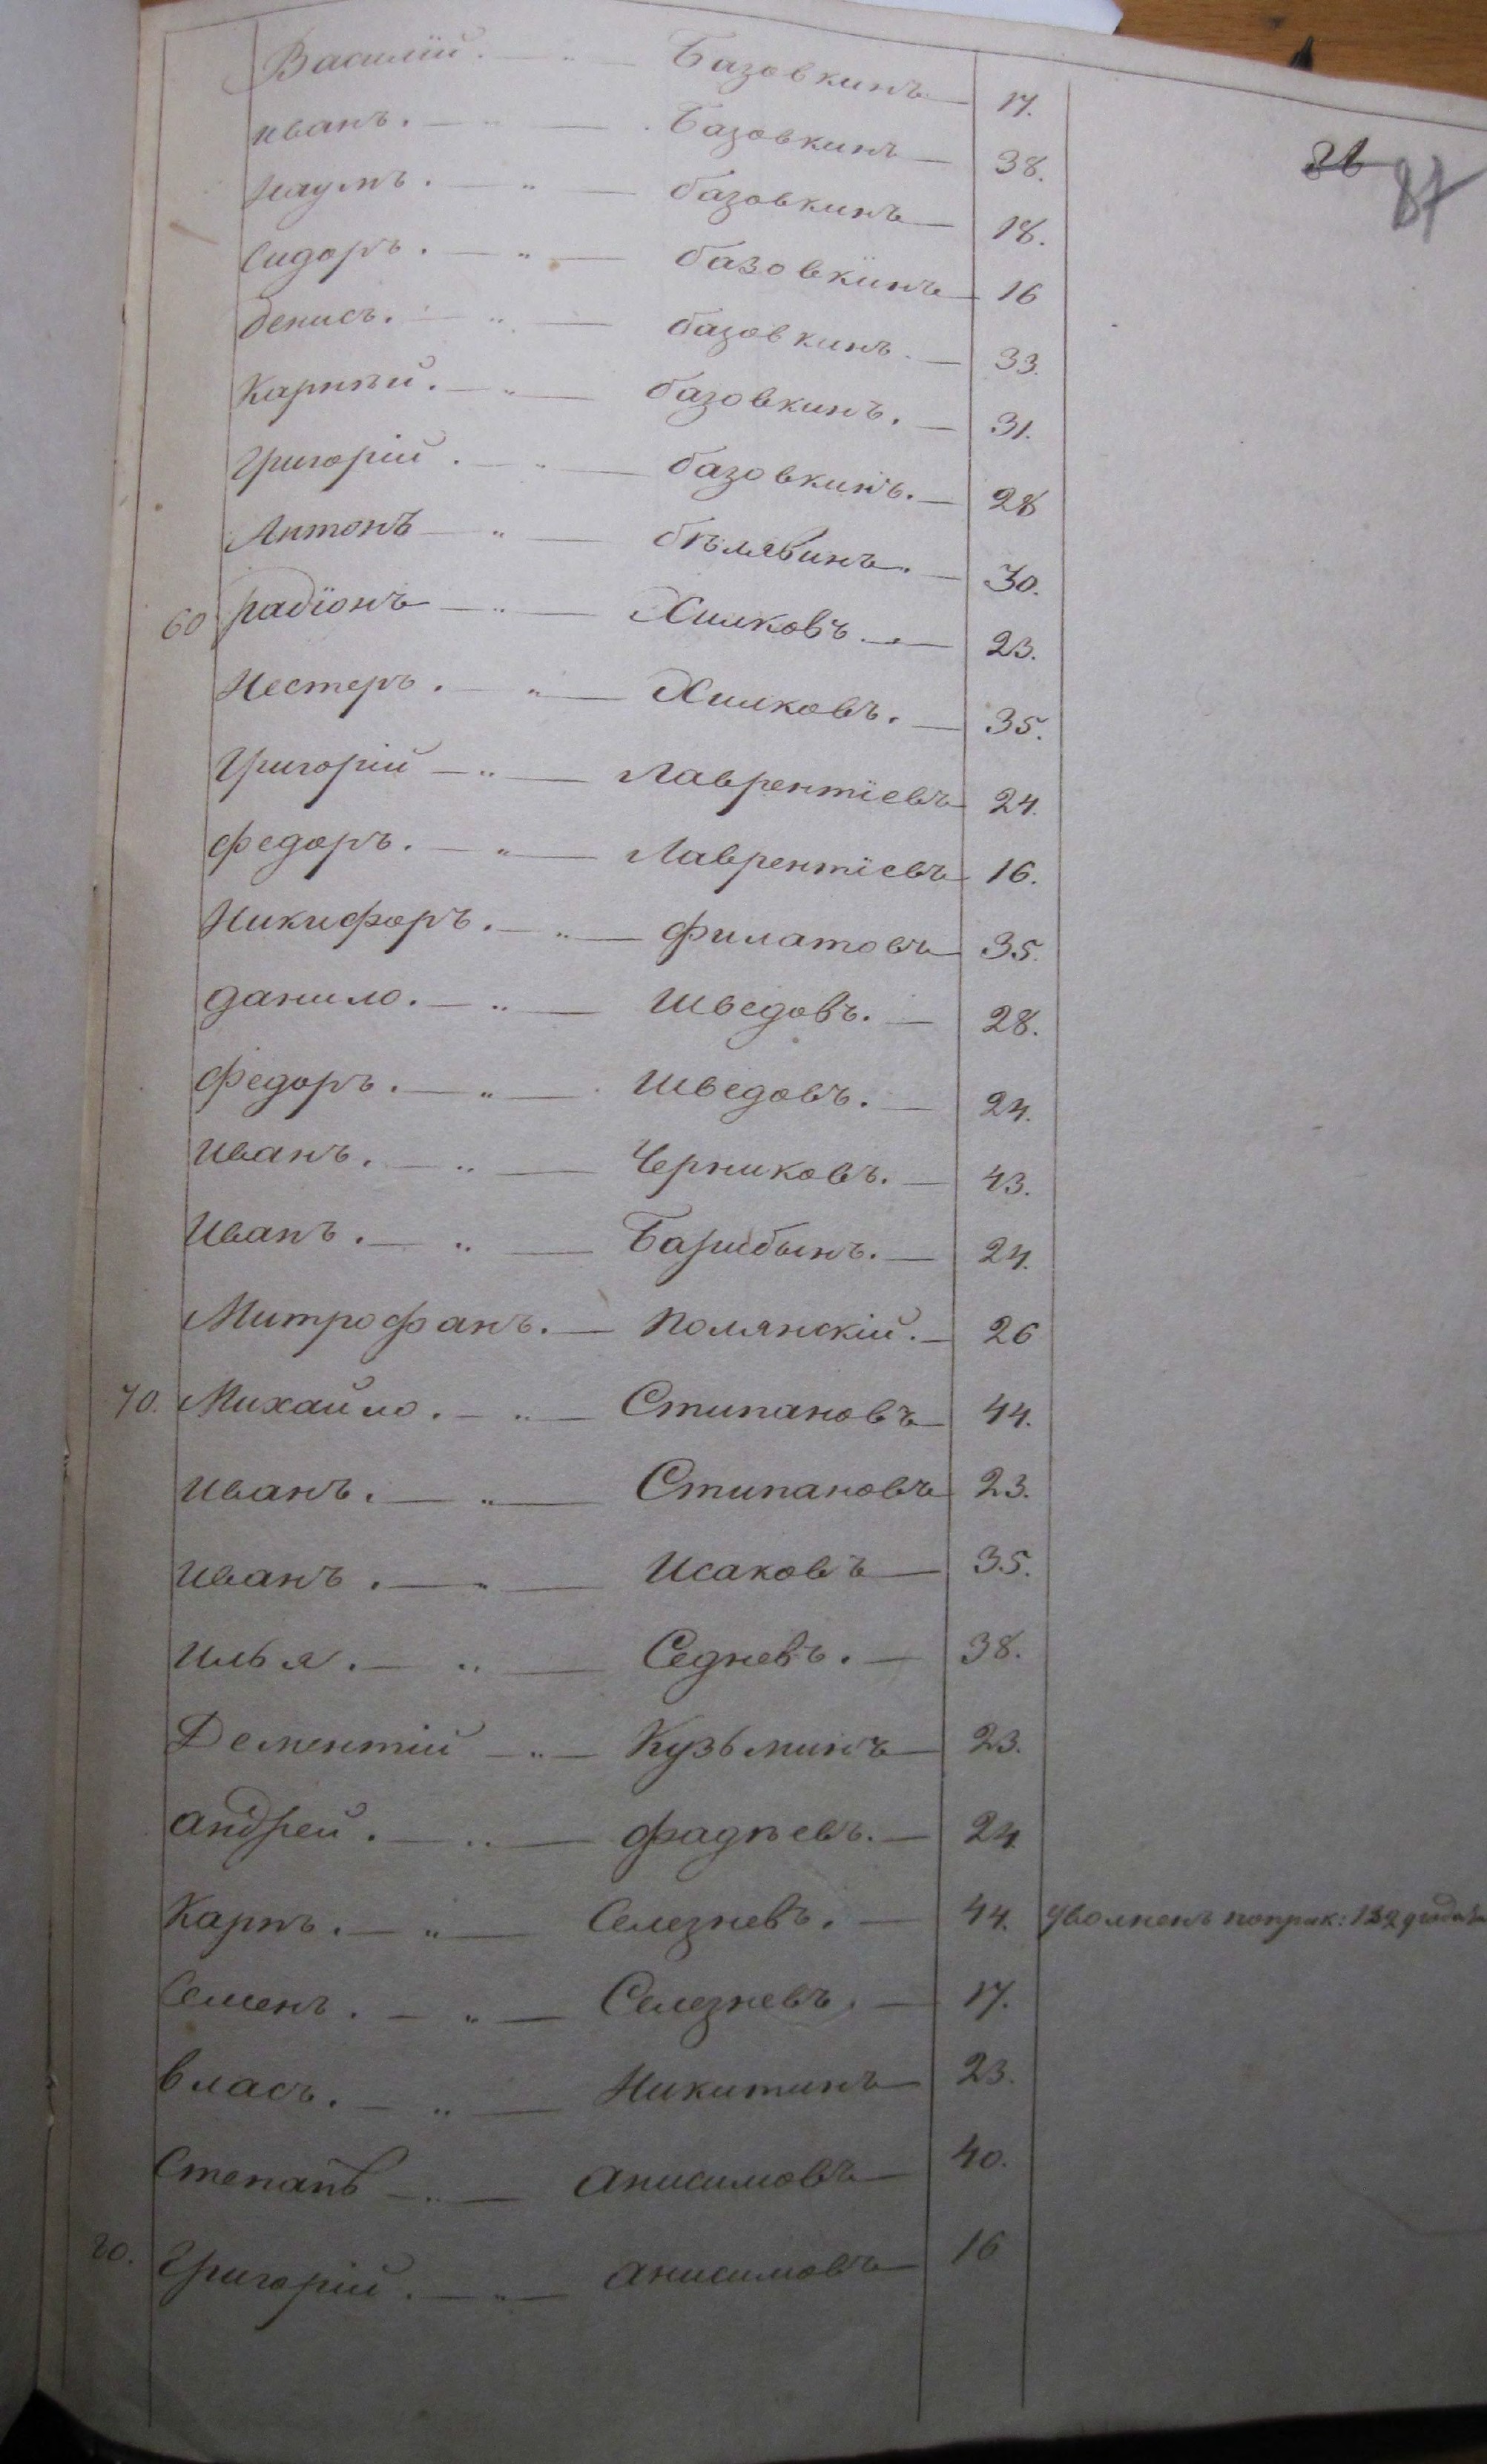 Василій. — „ — Базовкинъ — 17.
86 87
иванъ. — „ — Базовкинъ — 38.
Наумъ. — „ — базовкинъ — 18.
Сидоръ. — „ — базовкинъ — 16
денисъ. — „ — базовкинъ. — 33.
Карпѣй. — „ — базовкинъ. — 31.
Григорій. — „ — базовкинъ. — 28
Антонъ — „ — бѣлявинъ. — 30.
60 радіонъ — „ — Хилковъ — 23.
Нестеръ. — „ — Хилковъ. — 35.
Григорій — „ — Лаврентіевъ 24.
федоръ. — „ — Лаврентіевъ 16.
Никифоръ. — „ — филатовъ 35.
данило. — „ — Шведовъ. — 28.
федоръ. — „ — Шведовъ. — 24.
Иванъ. — „ — Черниковъ. — 43.
Иванъ. — „ — Барибынъ. — 24.
Митрофанъ. — Полянскій. — 26
70. Михайло. — „ — Стипановъ 44.
иванъ. — „ — Стипановъ 23.
иванъ. — „ — Исаковъ — 35.
илья. — „ — Седневъ. — 38.
Дементій — „ — Кузьминъ — 23.
андрей. — „ — фадѣевъ. — 24.
Карпъ. — „ — Селезневъ. — 44. уволненъ
Семенъ. — „ — Селезневъ. — 17.
власъ. — „ — Никитинъ — 23.
Степанъ — „ — анисимовъ — 40.
80. Григорій. — „ — анисимовъ — 16